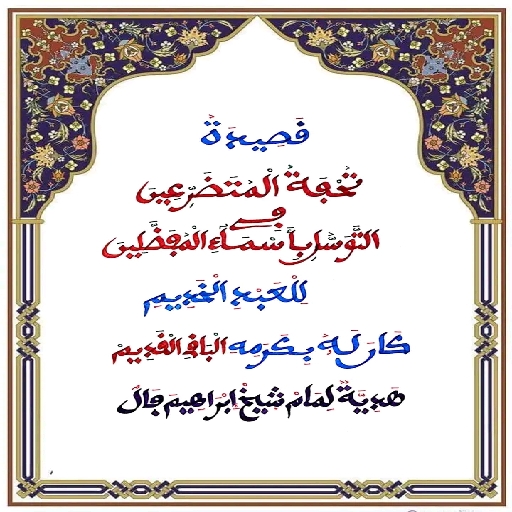 قصيدة
تُحْفَةُ الْمُتَضَرِّعِينَ
في
التَّوَسُّلِ بِأَسْمَاءِ الْمُفَضَّلِينَ
لِلْعَبْدِ الْخَدِيمِ
كَانَ لَهُ بِكَرَمِهِ الْبَاقِ الْقَدِيمُ
هَدِيَّةٌ لِمَامْ شيخْ ابْرَاهِيمَ جَالَ